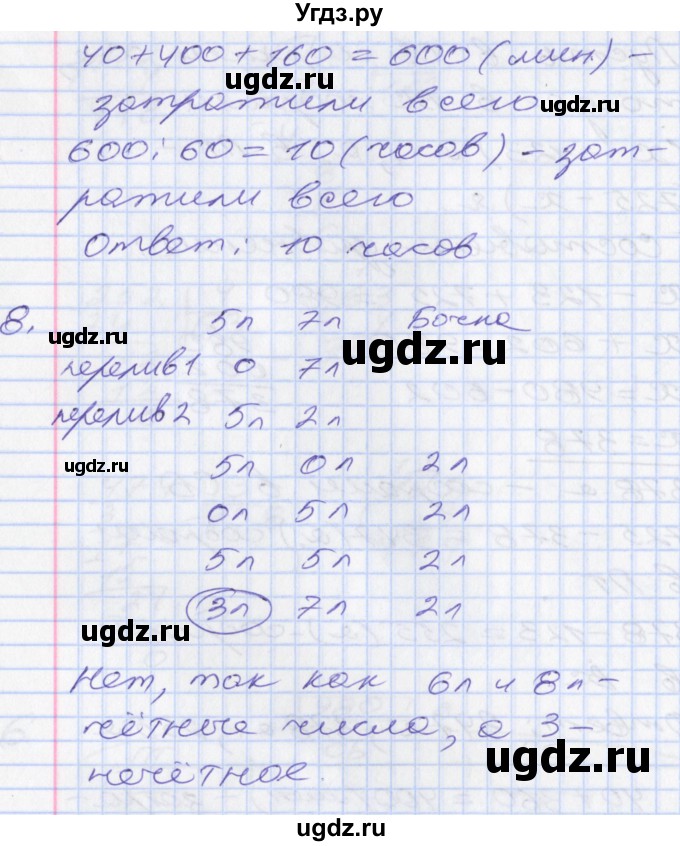 Угдз.ру
40+400+160=600(мин)-
затратили всего
600:60=10(часов)-зат-
ратили всего
Ответ: 10 часов
8. 5л 7л Бочка
перелив1 0 7л
перелив2 5л 2л
5л 0л 2л
0л 5л 2л
5л 5л 2л
3л 7л 2л
Нет, так как 6л и 8л-
чётные числа, а 3-
нечётное.
ugdz.ru
ugdz.ru
ugdz.ru
ugdz.ru
ugdz.ru
ugdz.ru
ugdz.ru
ugdz.ru
ugdz.ru